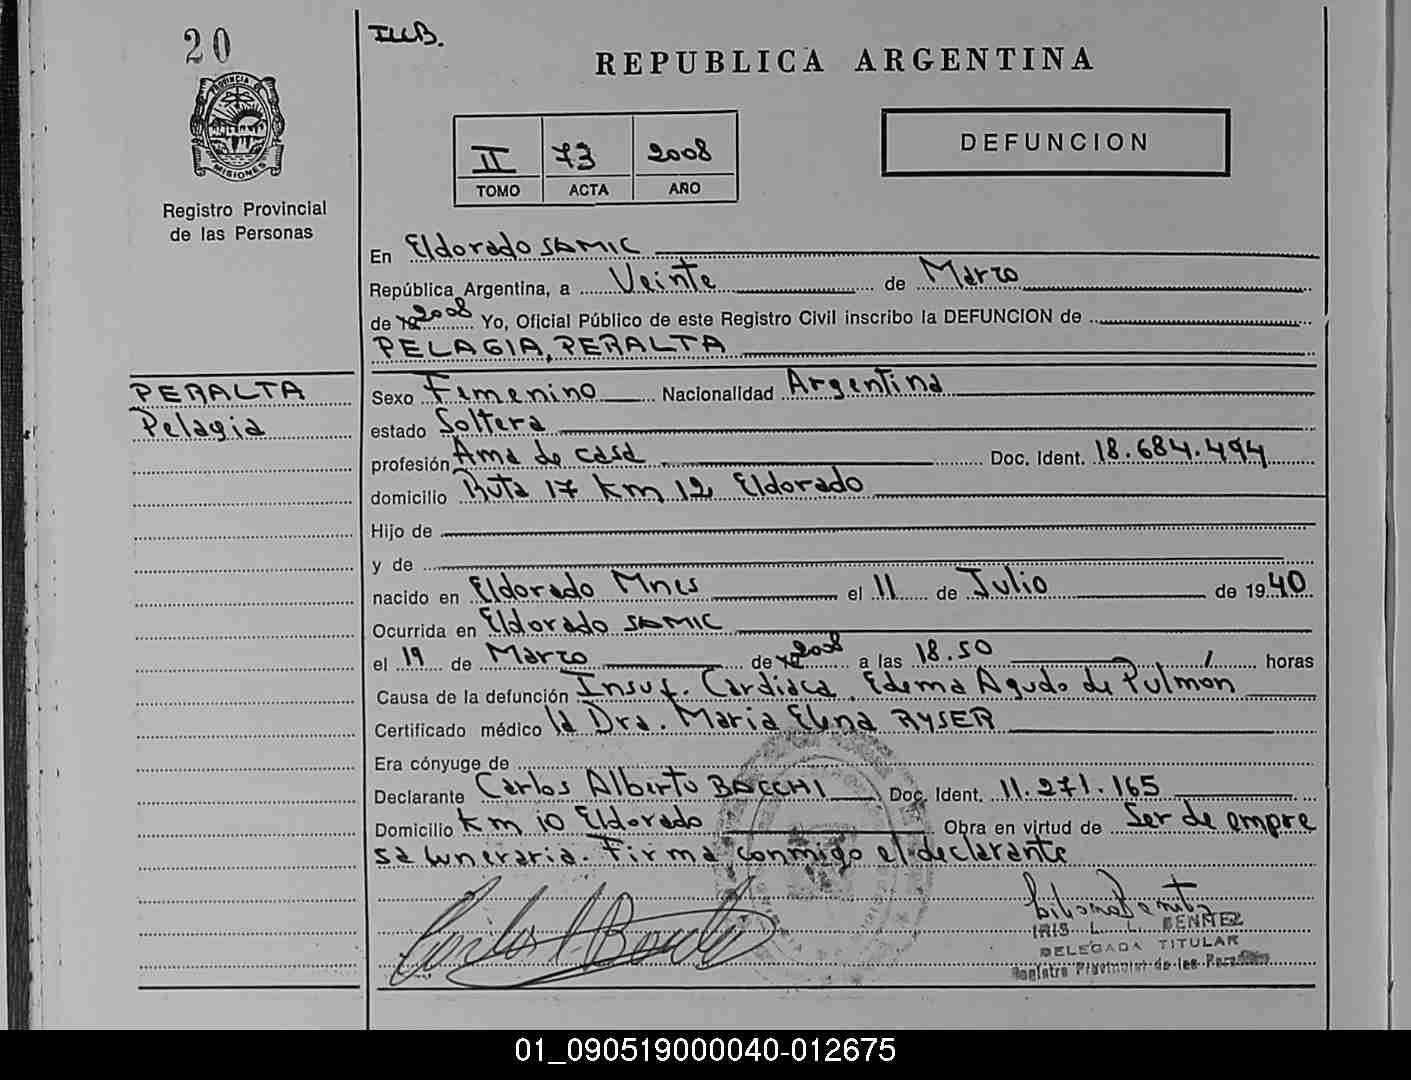 20
I.L.B.
REPUBLICA ARGENTINA
PROVINCIA DE
MISIONES
II 73 2008
TOMO ACTA AÑO
DEFUNCION
Registro Provincial
de las Personas
En Eldorado SAMIC
República Argentina, a Veinte de Marzo
de 2008 Yo, Oficial Público de este Registro Civil inscribo la DEFUNCION de
PELAGIA, PERALTA
PERALTA
Pelagia
Sexo Femenino Nacionalidad Argentina
estado Soltera
profesión Ama de casa Doc. Ident. 18.684.494
domicilio Ruta 17 Km 12 Eldorado
Hijo de
y de
nacido en Eldorado Mnes el 11 de Julio de 1940
Ocurrida en Eldorado SAMIC
el 19 de Marzo de 2008 a las 18.50 horas
Causa de la defunción Insuf. Cardiaca. Edema Agudo de Pulmon
Certificado médico la Dra. Maria Elena RYSER
Era cónyuge de
Declarante Carlos Alberto BACCHI Doc. Ident. 11.271.165
Domicilio Km 10 Eldorado Obra en virtud de Ser de empre
sa funeraria. Firma conmigo el declarante
IRIS L. L. BENITEZ
DELEGADA TITULAR
Registro Provincial de las Personas
01_090519000040-012675